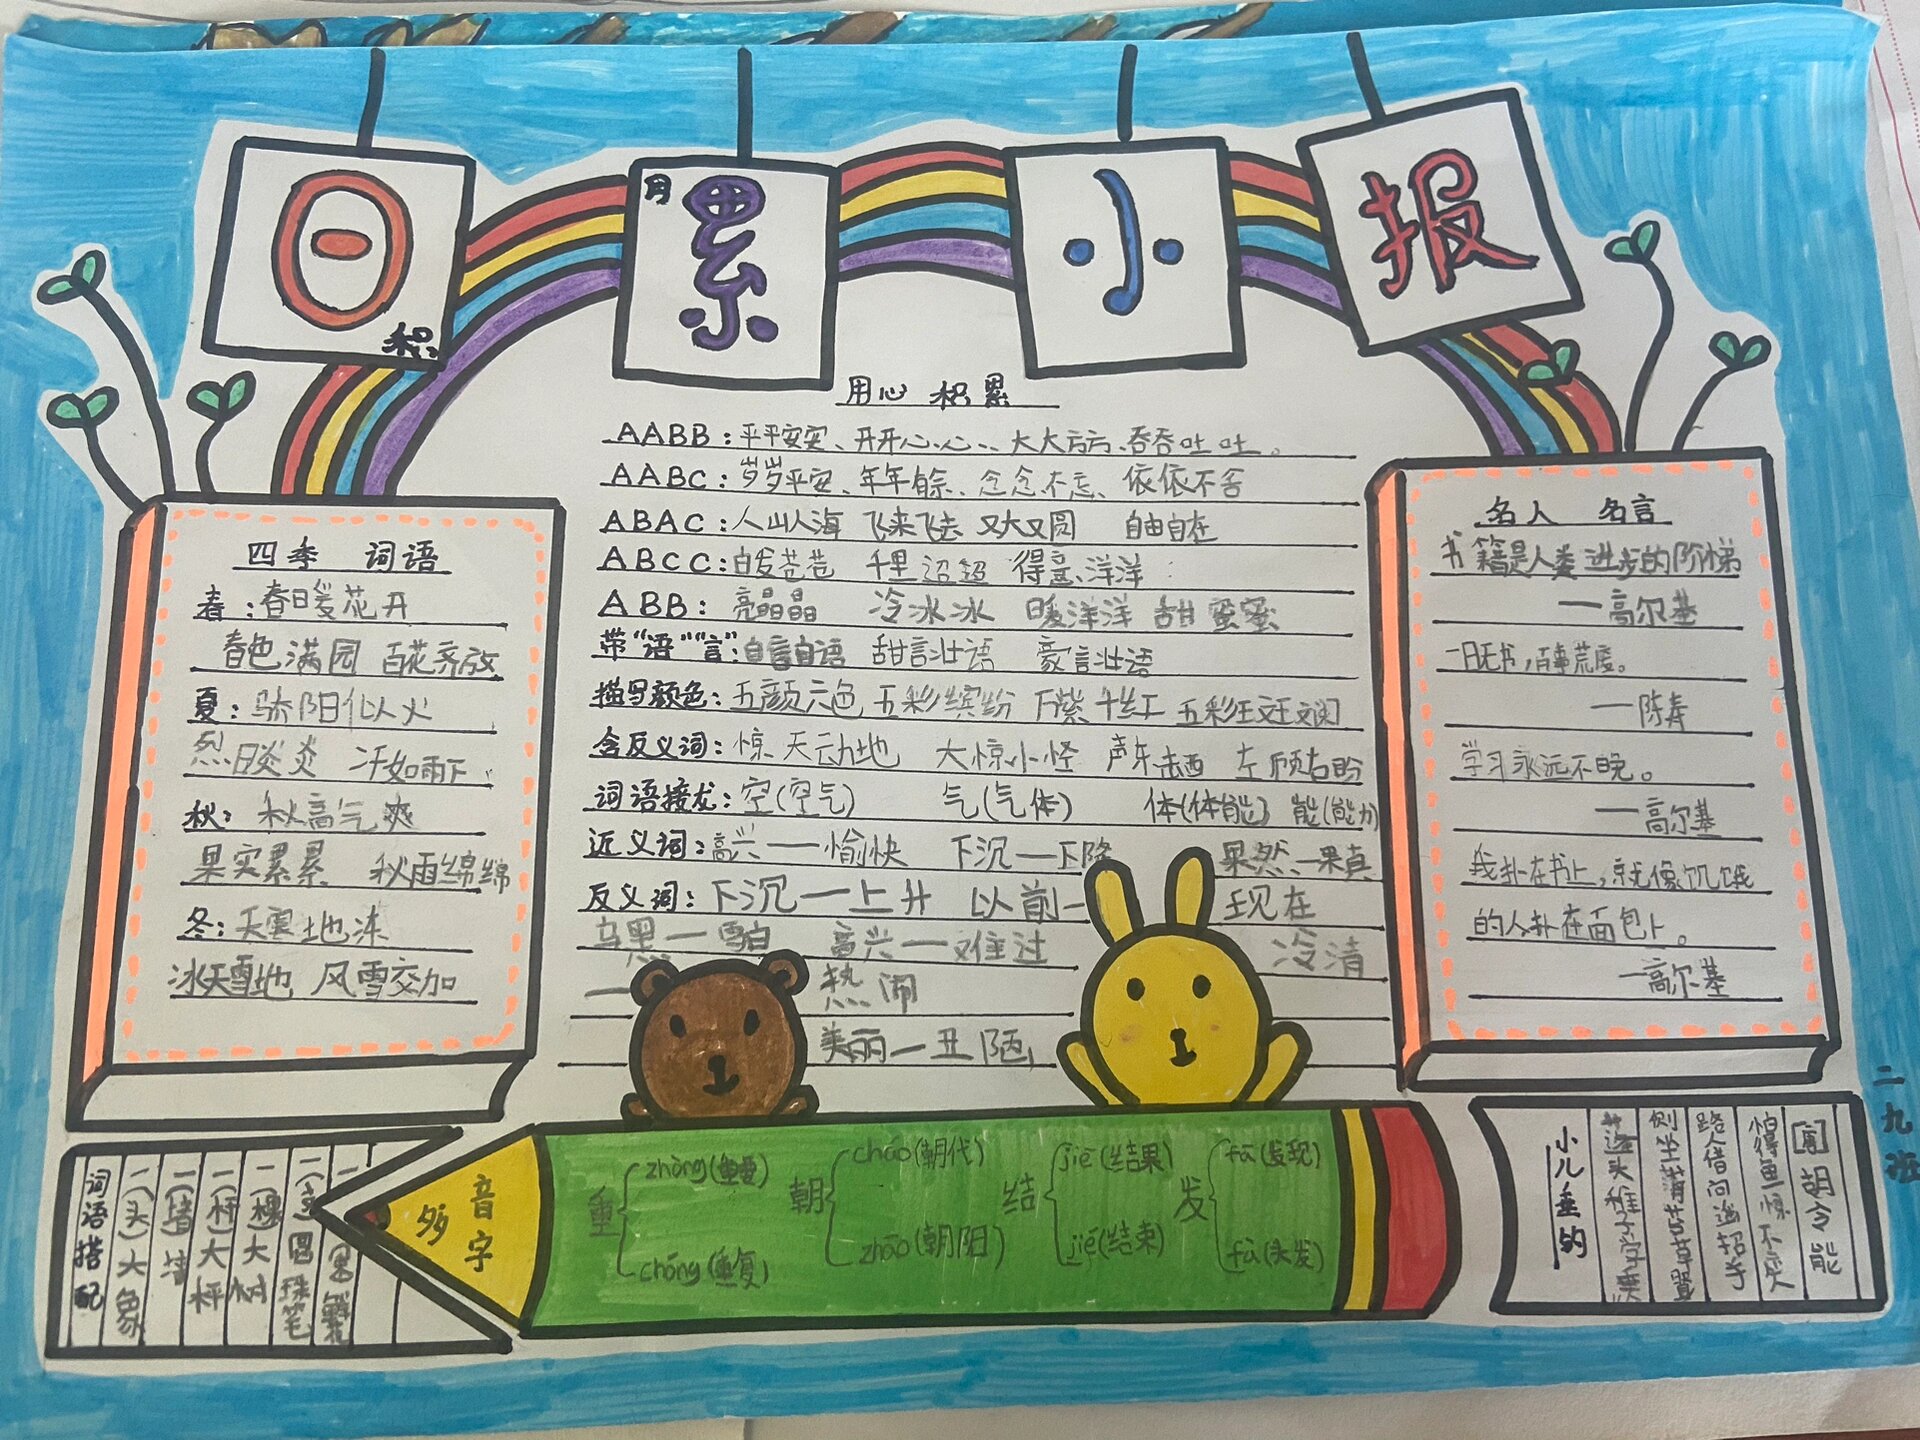 日积
月累
小
报
用心 积累
AABB:平平安安、开开心心、大大方方、吞吞吐吐。
AABC:岁岁平安、年年有余、念念不忘、依依不舍
ABAC:人山人海 飞来飞去 又大又圆 自由自在
ABCC:白发苍苍 千里迢迢 得意洋洋
ABB:亮晶晶 冷冰冰 暖洋洋 甜蜜蜜
带“语”“言”:自言自语 甜言壮语 豪言壮语
描写颜色:五颜六色 五彩缤纷 万紫千红 五彩斑斓
含反义词:惊天动地 大惊小怪 声东击西 左顾右盼
词语接龙:空(空气) 气(气体) 体(体能) 能(能力)
近义词:高兴—愉快 下沉—下降 果然—果真
反义词:下沉—上升 以前— 现在
乌黑—雪白 高兴—难过 冷清
— 热闹
美丽—丑陋
四季 词语
春:春暖花开
春色满园 百花齐放
夏:骄阳似火
烈日炎炎 汗如雨下
秋:秋高气爽
果实累累 秋雨绵绵
冬:天寒地冻
冰天雪地 风雪交加
名人 名言
书籍是人类进步的阶梯
—高尔基
一日无书,百事荒废。
—陈寿
学习永远不晚。
—高尔基
我扑在书上,就像饥饿
的人扑在面包上。
—高尔基
词语搭配
一(头)大象
一(堵)墙
一(杆)大秤
一(棵)大树
多音字
重 zhòng(重要)
chóng(重复)
朝 cháo(朝代)
zhāo(朝阳)
结 jiē(结果)
jié(结束)
发 fā(发现)
fà(头发)
[唐]胡令能
怕得鱼惊不应
路人借问遥招手
侧坐莓苔草
蓬头稚子学垂
小儿垂钓
二九班